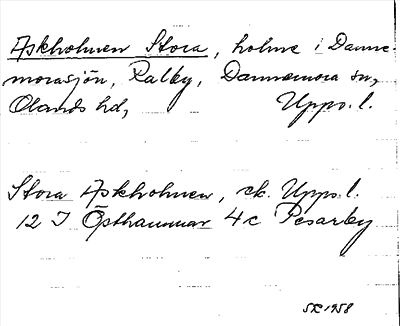 Askholmen Stora, holme i Danne-
morasjön, Ralby, Dannemora sn,
Olands hd, Upps. l.
Stora Askholmen, ek. Upps. l.
12 I Östhammar 4c Pesarby
SR 1958